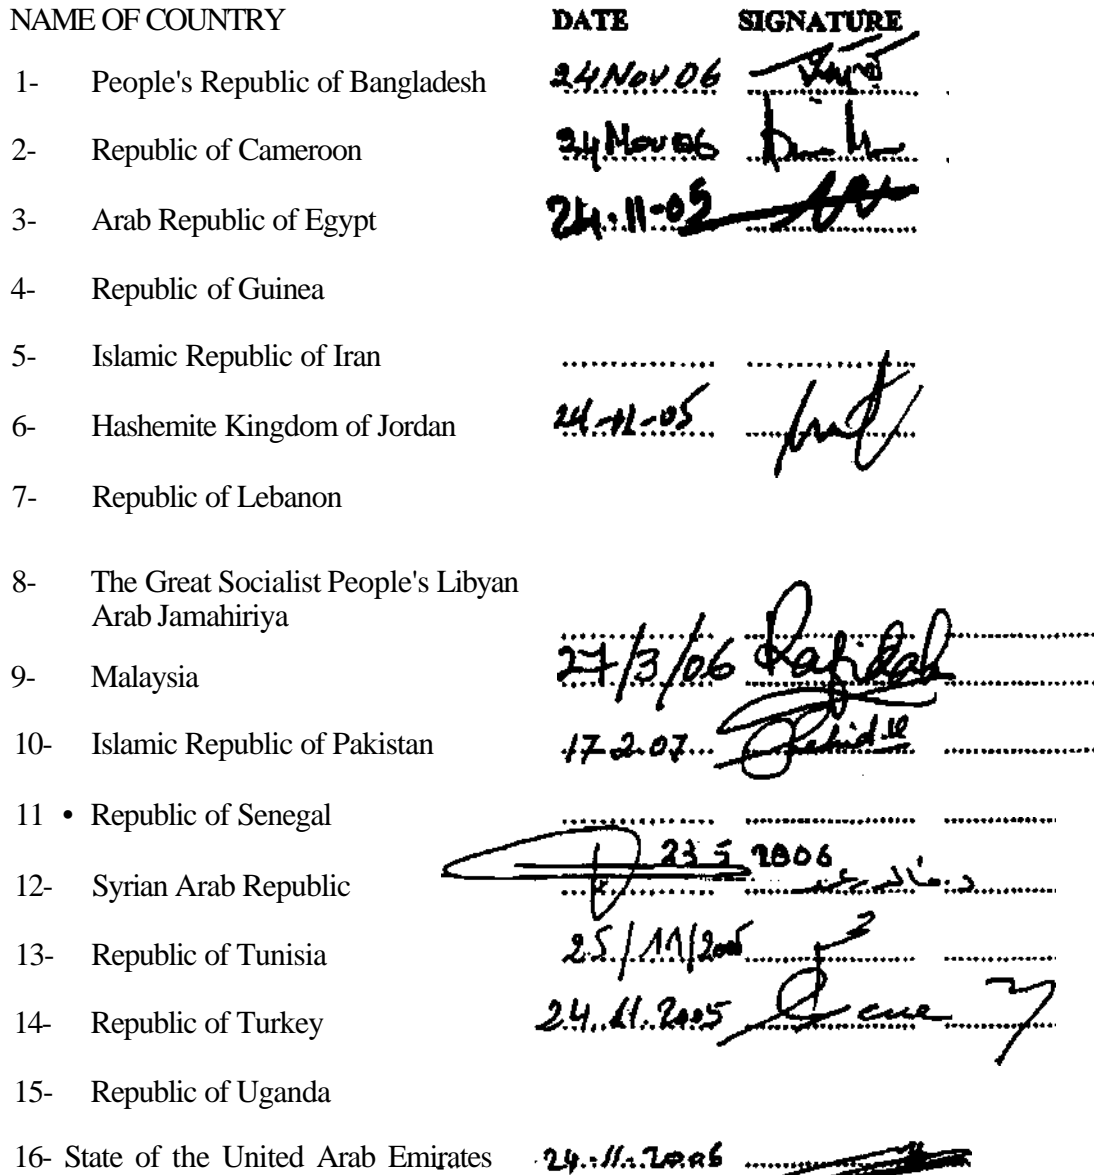 NAME OF COUNTRY DATE SIGNATURE
1- People's Republic of Bangladesh 24 Nov 06
2- Republic of Cameroon 24 Nov 06
3- Arab Republic of Egypt 24-11-05
4- Republic of Guinea
5- Islamic Republic of Iran
6- Hashemite Kingdom of Jordan 24-11-05
7- Republic of Lebanon
8- The Great Socialist People's Libyan
Arab Jamahiriya
9- Malaysia 27/3/06 Rafidah
10- Islamic Republic of Pakistan 17.2.07
11 • Republic of Senegal
12- Syrian Arab Republic 23 5 2006
13- Republic of Tunisia 25/11/2005
14- Republic of Turkey 24.11.2005
15- Republic of Uganda
16- State of the United Arab Emirates 24.11.2006